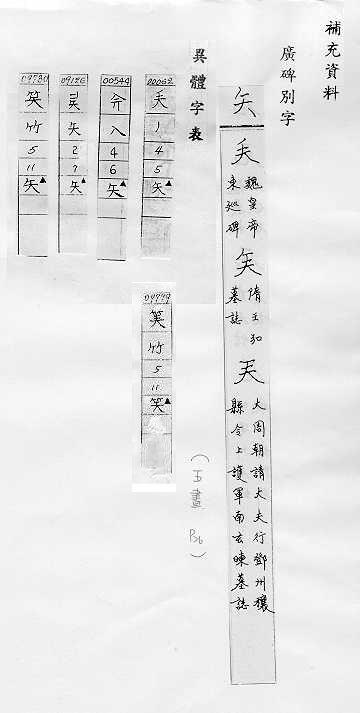 補充資料
廣碑別字
矢
魏皇帝
東巡碑
隋王弘
墓誌
大周朝請大夫行鄧州穰
縣令上護軍南玄暕墓誌
異體字表
00062
丿
4
5
矢▲
00544
入
4
6
矢▲
09126
矢
2
7
矢▲
竹
5
11
矢▲
竹
5
11
笑▲
(五畫 B6)